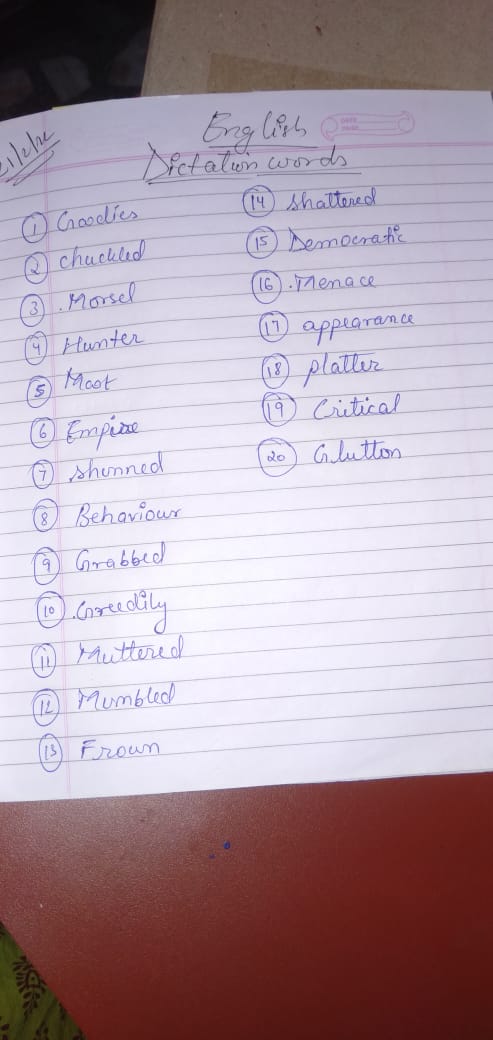 English
Dictation words
① Goodies
② chuckled
③ . Morsel
④ Hunter
⑤ Moot
⑥ Empire
⑦ shunned
⑧ Behaviour
⑨ Grabbed
⑩ . Greedily
⑪ Muttered
⑫ Mumbled
⑬ Frown
⑭ shattered
⑮ Democratic
⑯ . Menace
⑰ appearance
⑱ platter
⑲ Critical
⑳ Glutton